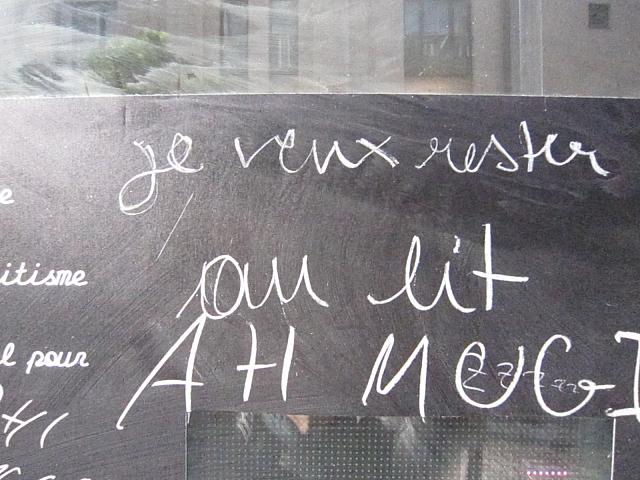 je veux rester
au lit
itisme
pour
AH
zzzz